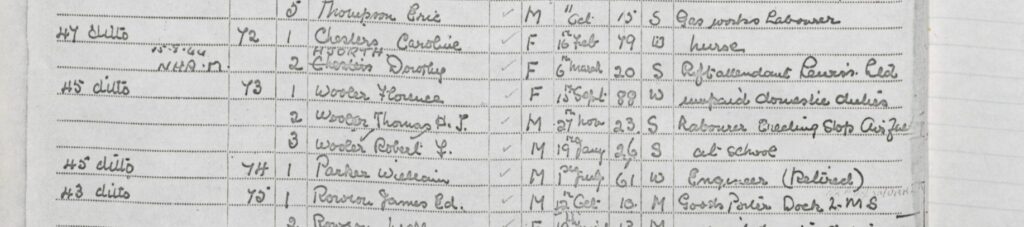 5 Thompson Eric M 11 Oct 15 S Gas works Labourer
47 ditto 72 1 Chesters Caroline F 16 Feb 79 W nurse
HJORTH
NHR. M. 2 Chesters Dorothy F 6th March 20 S Lift attendant Lewis's Ltd
45 ditto 73 1 Wooler Florence F 15th Sept 88 W unpaid domestic duties
2 Wooler Thomas H. J. M 27th Nov 23 S Labourer
3 Wooler Robert F. M 19th Aug 26 S at school
45 ditto 74 1 Parker William M 1st July 61 W Engineer (Retired)
43 ditto 75 1 James Ed. M 12th Oct 10 M Goods Porter Dock L.M.S
2